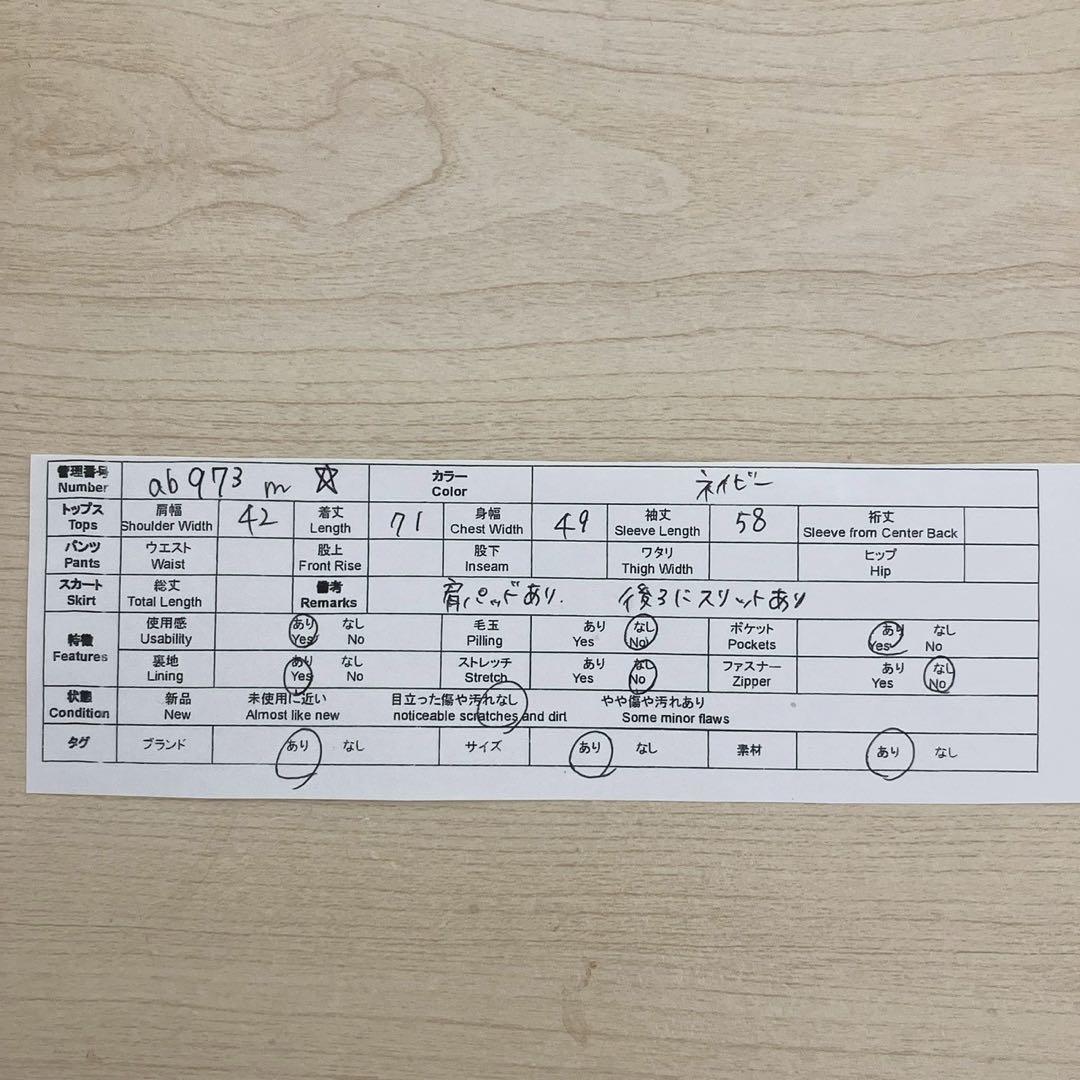 管理番号 Number ab973 m ☆ カラー Color ネイビー
トップス Tops 肩幅 Shoulder Width 42 着丈 Length 71 身幅 Chest Width 49 袖丈 Sleeve Length 58 裄丈 Sleeve from Center Back
パンツ Pants ウエスト Waist 股上 Front Rise 股下 Inseam ワタリ Thigh Width ヒップ Hip
スカート Skirt 総丈 Total Length 備考 Remarks 肩パッドあり. 後ろにスリットあり
特徴 Features 使用感 Usability あり Yes なし No 毛玉 Pilling あり Yes なし No ポケット Pockets あり Yes なし No
裏地 Lining あり Yes なし No ストレッチ Stretch あり Yes なし No ファスナー Zipper あり Yes なし No
状態 Condition 新品 New 未使用に近い Almost like new 目立った傷や汚れなし noticeable scratches and dirt やや傷や汚れあり Some minor flaws
タグ ブランド あり なし サイズ あり なし 素材 あり なし